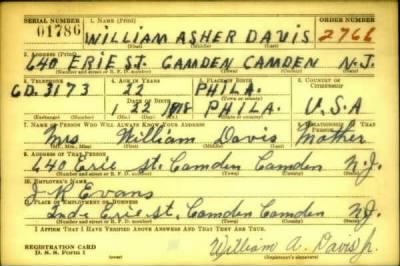 SERIAL NUMBER 1. NAME (Print) ORDER NUMBER
01786 WILLIAM ASHER DAVIS 2766
(First) (Middle) (Last)
2. ADDRESS (Print)
640 ERIE ST. CAMDEN CAMDEN N.J.
(Number and street or R. F. D. number) (Town) (County) (State)
3. TELEPHONE 4. AGE IN YEARS 5. PLACE OF BIRTH 6. COUNTRY OF CITIZENSHIP
CD. 3173 22 PHILA.
DATE OF BIRTH (Town or county)
1 22 1918 PHILA. U.S.A
(Exchange) (Number) (Mo.) (Day) (Yr.) (State or country)
7. NAME OF PERSON WHO WILL ALWAYS KNOW YOUR ADDRESS 8. RELATIONSHIP OF THAT PERSON
Mrs William Davis Mother
(Mr., Mrs., Miss) (First) (Middle) (Last)
9. ADDRESS OF THAT PERSON
640 Erie St. Camden Camden N.J.
(Number and street or R. F. D. number) (Town) (County) (State)
10. EMPLOYER'S NAME
J R Evans
11. PLACE OF EMPLOYMENT OR BUSINESS
2nd & Erie st. Camden Camden N.J.
(Number and street or R. F. D. number) (Town) (County) (State)
I AFFIRM THAT I HAVE VERIFIED ABOVE ANSWERS AND THAT THEY ARE TRUE.
REGISTRATION CARD William A. Davis Jr.
D. S. S. Form 1 (Registrant's signature)